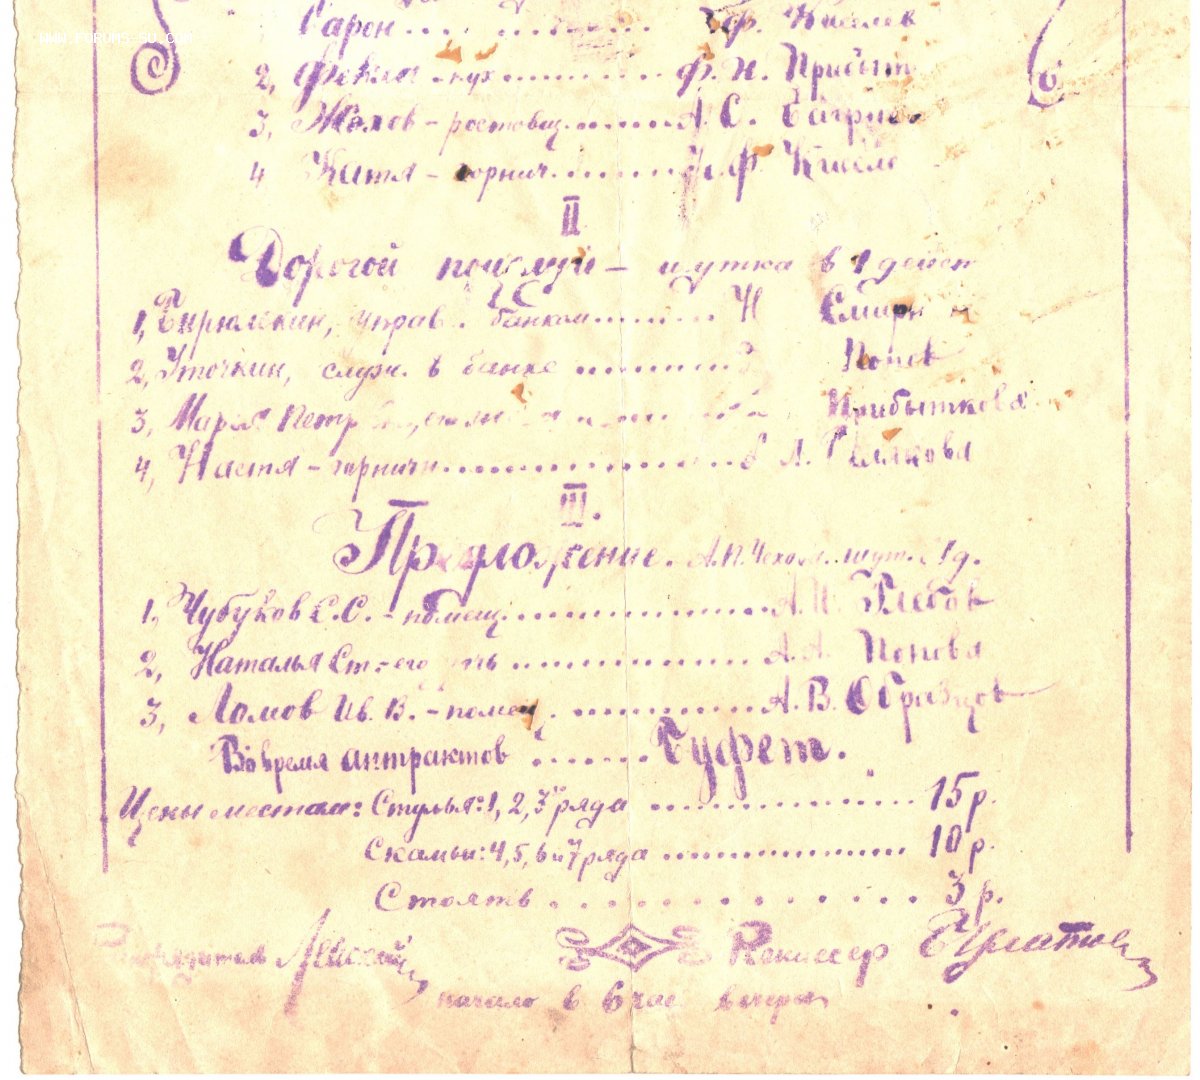 Гарон ........ Ф. Киселев
2, Фекла - кух ........ Ф. И. Прибыт
3, Жохов - ростовщ ........ А. С. Багри
4 Катя - горнич ........ Ф. Кисел
II
Дорогой поцелуй - шутка в 1 дейст
1, Бирюлькин, управ. банком ........ Н Смирн
2, Уточкин, служ. в банке ........ Попов
3, Мария Петр Прибыткова
4, Настя - горничн ........ А. Белякова
III.
Предложение. А. П. Чехова. шут. в 1 д.
1, Чубуков С. С. - помещ ........ А. И. Глебов
2, Наталья Ст. - его дочь ........ А. А. Попова
3, Ломов Ив. В. - помещ. ........ А. В. Образцов
Во время антрактов ........ Буфет.
Цены местам: Стулья: 1, 2, 3й ряда ........ 15 р.
Скамьи: 4, 5, 6 и 7 ряда ........ 10 р.
Стоять ........ 3 р.
Режиссер
начало в 6 час вечера